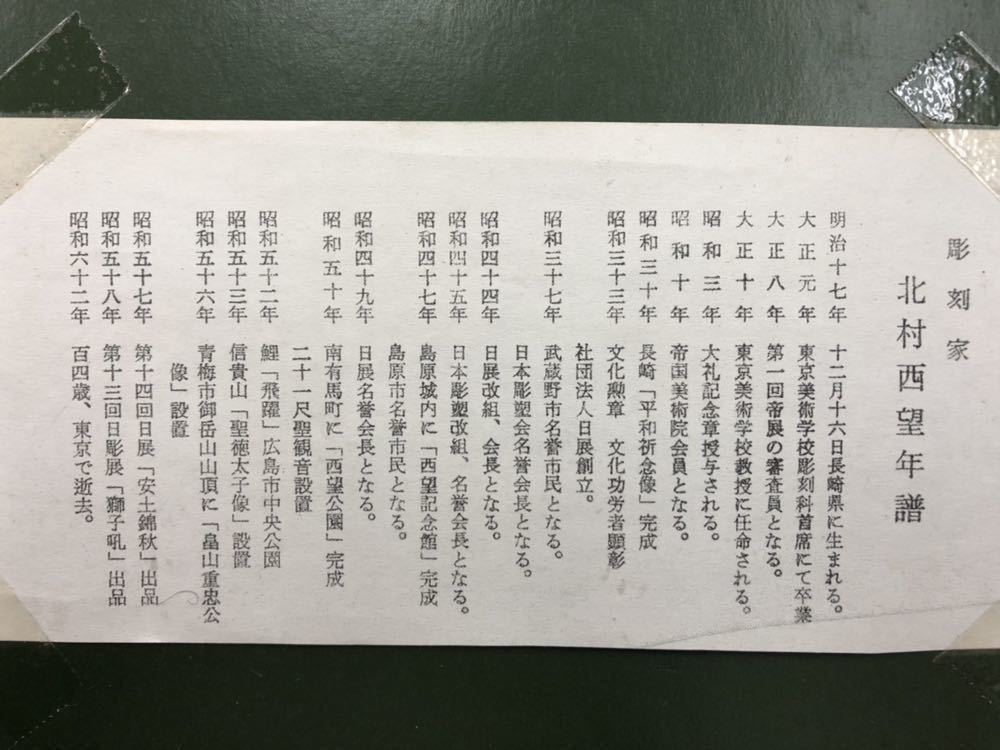 彫刻家
北村西望年譜
明治十七年 十二月十六日長崎県に生まれる。
大正元年 東京美術学校彫刻科首席にて卒業
大正八年 第一回帝展の審査員となる。
大正十年 東京美術学校教授に任命される。
昭和三年 大礼記念章授与される。
昭和十年 帝国美術院会員となる。
昭和三十年 長崎「平和祈念像」完成
昭和三十三年 文化勲章 文化功労者顕彰
社団法人日展創立。
昭和三十七年 武蔵野市名誉市民となる。
日本彫塑会名誉会長となる。
昭和四十四年 日展改組、会長となる。
昭和四十五年 日本彫塑改組、名誉会長となる。
昭和四十七年 島原城内に「西望記念館」完成
島原市名誉市民となる。
昭和四十九年 日展名誉会長となる。
昭和五十年 南有馬町に「西望公園」完成
二十一尺聖観音設置
昭和五十二年 鯉「飛躍」広島市中央公園
昭和五十三年 信貴山「聖徳太子像」設置
昭和五十六年 青梅市御岳山山頂に「畠山重忠公
像」設置
昭和五十七年 第十四回日展「安土錦秋」出品
昭和五十八年 第十三回日彫展「獅子吼」出品
昭和六十二年 百四歳、東京で逝去。